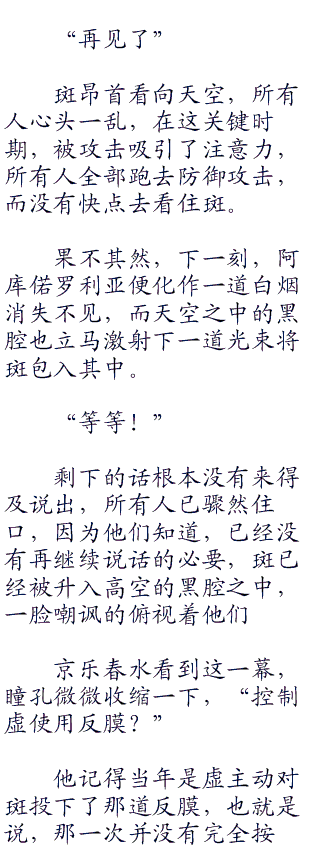 “再见了”
斑昂首看向天空，所有
人心头一乱，在这关键时
期，被攻击吸引了注意力，
所有人全部跑去防御攻击，
而没有快点去看住斑。
果不其然，下一刻，阿
库偌罗利亚便化作一道白烟
消失不见，而天空之中的黑
腔也立马激射下一道光束将
斑包入其中。
“等等！”
剩下的话根本没有来得
及说出，所有人已骤然住
口，因为他们知道，已经没
有再继续说话的必要，斑已
经被升入高空的黑腔之中，
一脸嘲讽的俯视着他们
京乐春水看到这一幕，
瞳孔微微收缩一下，“控制
虚使用反膜？”
他记得当年是虚主动对
斑投下了那道反膜，也就是
说，那一次并没有完全按